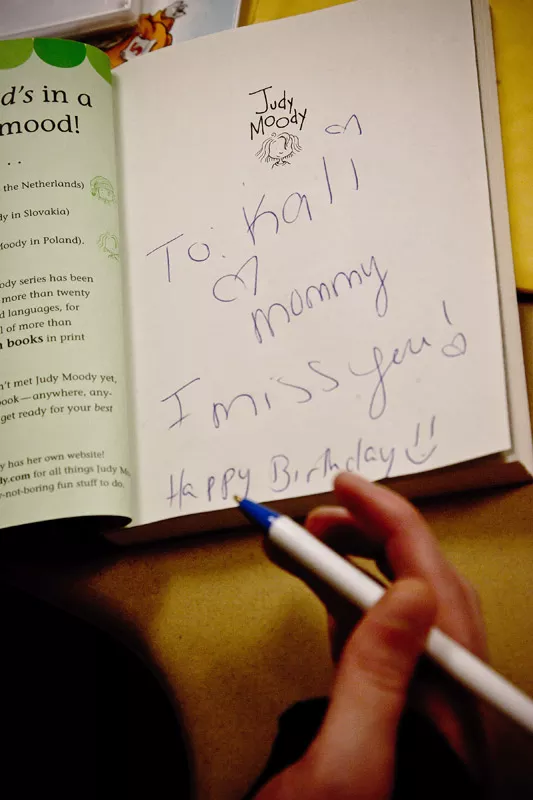 d's in a
mood!
. .
the Netherlands)
dy in Slovakia)
Moody in Poland).
ody series has been
more than twenty
d languages, for
l of more than
books in print
n't met Judy Moody yet,
ook—anywhere, any-
get ready for your best
y has her own website!
dy.com for all things Judy M
y-not-boring fun stuff to do.
Judy
Moody
To: Kali
mommy
I miss you!
Happy Birthday!!
S